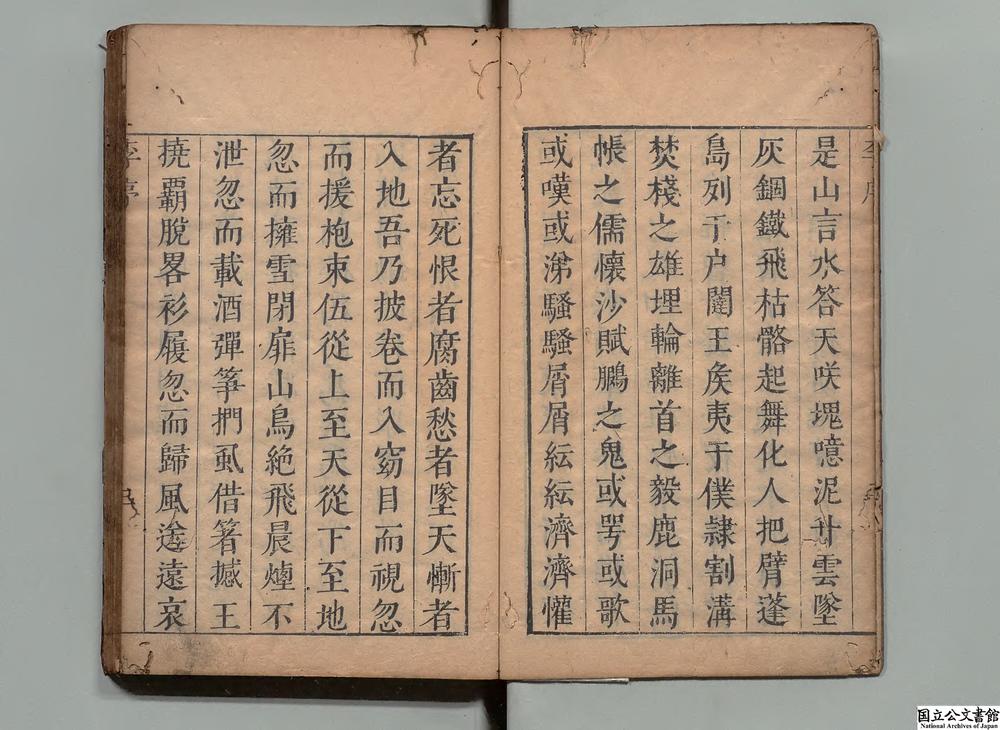 是山言水答天咲塊噫泥升雲墜
灰錮鐵飛枯骼起舞化人把臂蓬
島列于户闥王矦夷于僕隷割溝
焚棧之雄埋輪離首之毅鹿洞馬
帳之儒懷沙賦鵩之鬼或咢或歌
或嘆或涕騷騷屑屑紜紜濟濟懽
者忘死恨者腐齒愁者墜天慚者
入地吾乃披卷而入窈目而視忽
而援枹束伍從上至天從下至地
忽而擁雪閉扉山鳥絕飛晨煙不
泄忽而載酒彈箏捫虱借箸撼王
撓覇脫畧衫履忽而歸風送遠哀
李序
国立公文書館
National Archives of Japan